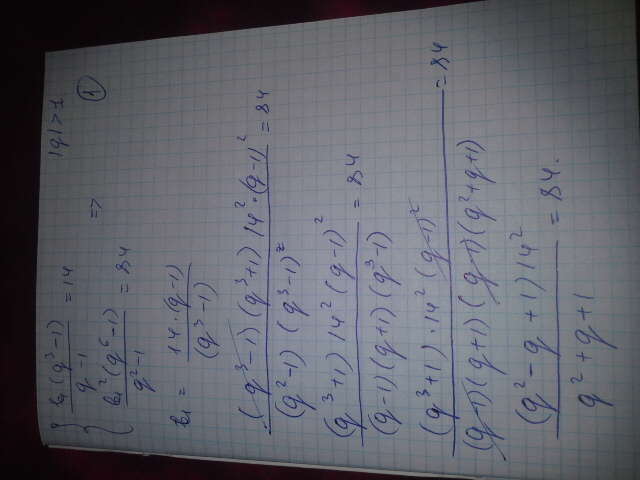 { b₁(q³-1)/(q-1) = 14    |q|>1
{ b₁²(q⁶-1)/(q²-1) = 84  =>  ①
b₁ = 14·(q-1)/(q³-1)
(q³-1)(q³+1)14²·(q-1)²/((q²-1)(q³-1)²) = 84
(q³+1)14²(q-1)²/((q-1)(q+1)(q³-1)) = 84
(q³+1)·14²(q-1)²/((q-1)(q+1)(q-1)(q²+q+1)) = 84
(q²-q+1)14²/(q²+q+1) = 84.